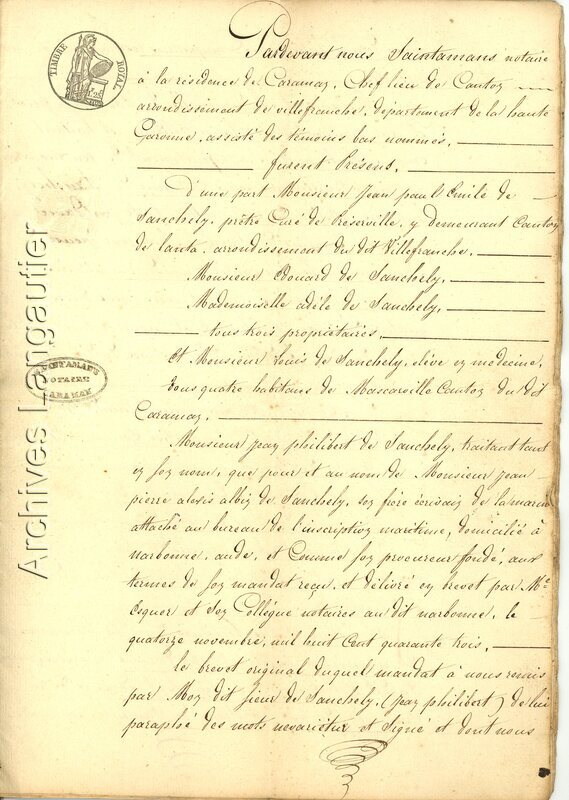 TIMBRE ROYAL
Pardevant nous Saintamans notaire
à la résidence de Caraman, Chef lieu de Canton
arrondissement de villefranche, département de la haute
Garonne, assisté des témoins bas nommés,
furent Présens,
D'une part Monsieur Jean paul Emile de
Sanchely, prêtre Curé de Préserville, y demeurant Canton
de lanta, arrondissement du dit Villefranche,
Monsieur Edouard de Sanchely,
Mademoiselle adèle de Sanchely,
tous trois propriétaires,
Et Monsieur Louis de Sanchely, élève en médecine,
Tous quatre habitans de Mascarville Canton du dit
Caraman,
Monsieur Jean philibert de Sanchely, traitant tant
en son nom, que pour et au nom de Monsieur Jean
pierre alexis albin de Sanchely, son frère écrivain de la marine
attaché au bureau de l'inscription maritime, domicilié à
narbonne, aude, et Comme son procureur fondé, aux
termes de son mandat reçu, et délivré en brevet par Me
Esquer et Son Collégue notaires au dit narbonne, le
quatorze novembre, mil huit Cent quarante trois,
le brevet original duquel mandat à nous remis
par Mon dit sieur de Sanchely, (Jean philibert) de lui
paraphé des mots nevarietur et Signé et dont nous
SAINTAMANS
NOTAIRE
CARAMAN
Archives Langautier